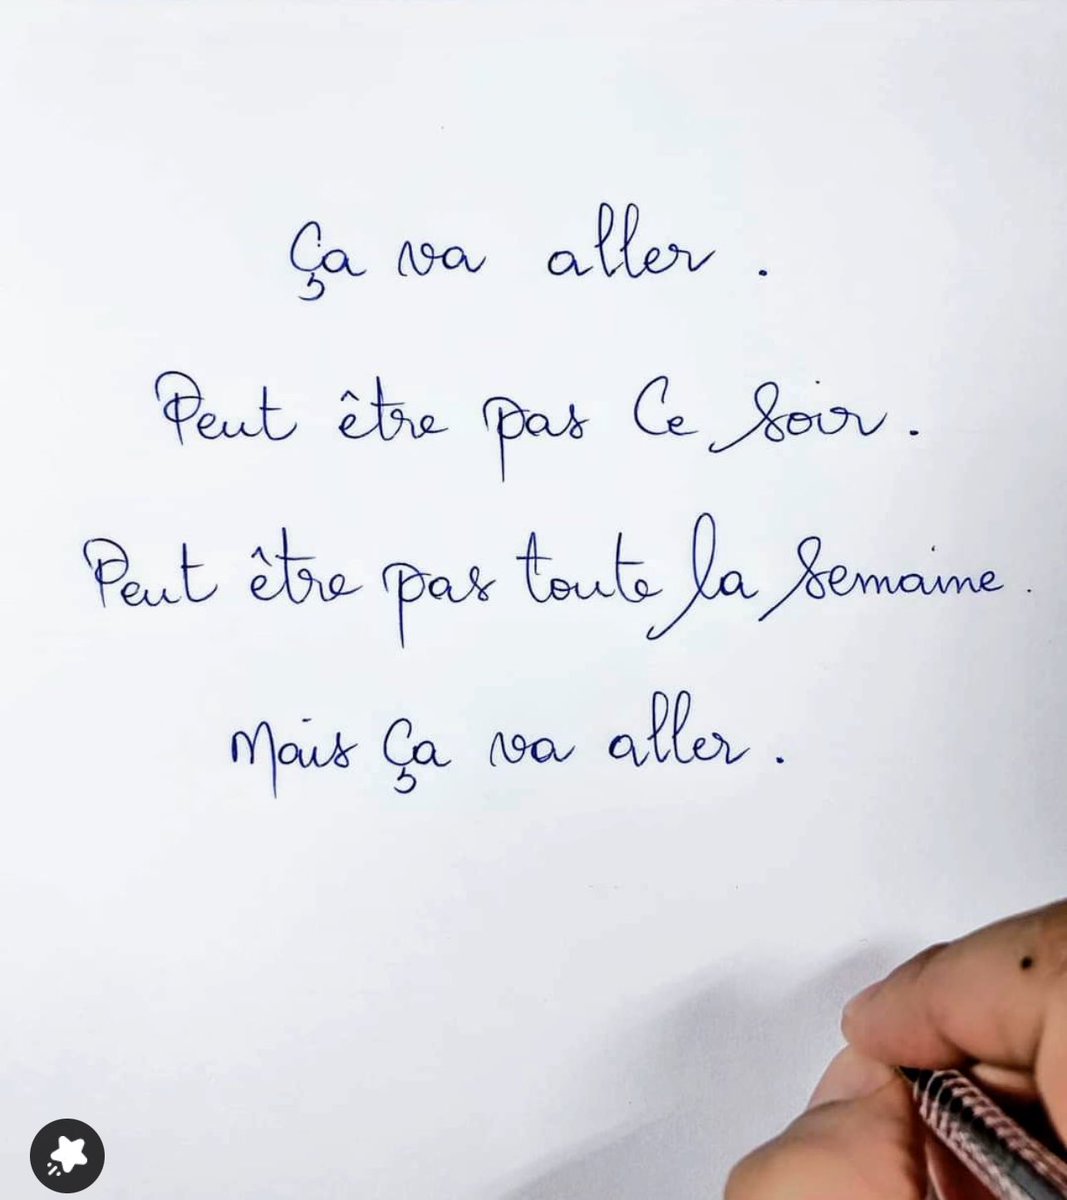 Ça va aller.
Peut être pas Ce soir.
Peut être pas toute la semaine.
Mais Ça va aller.